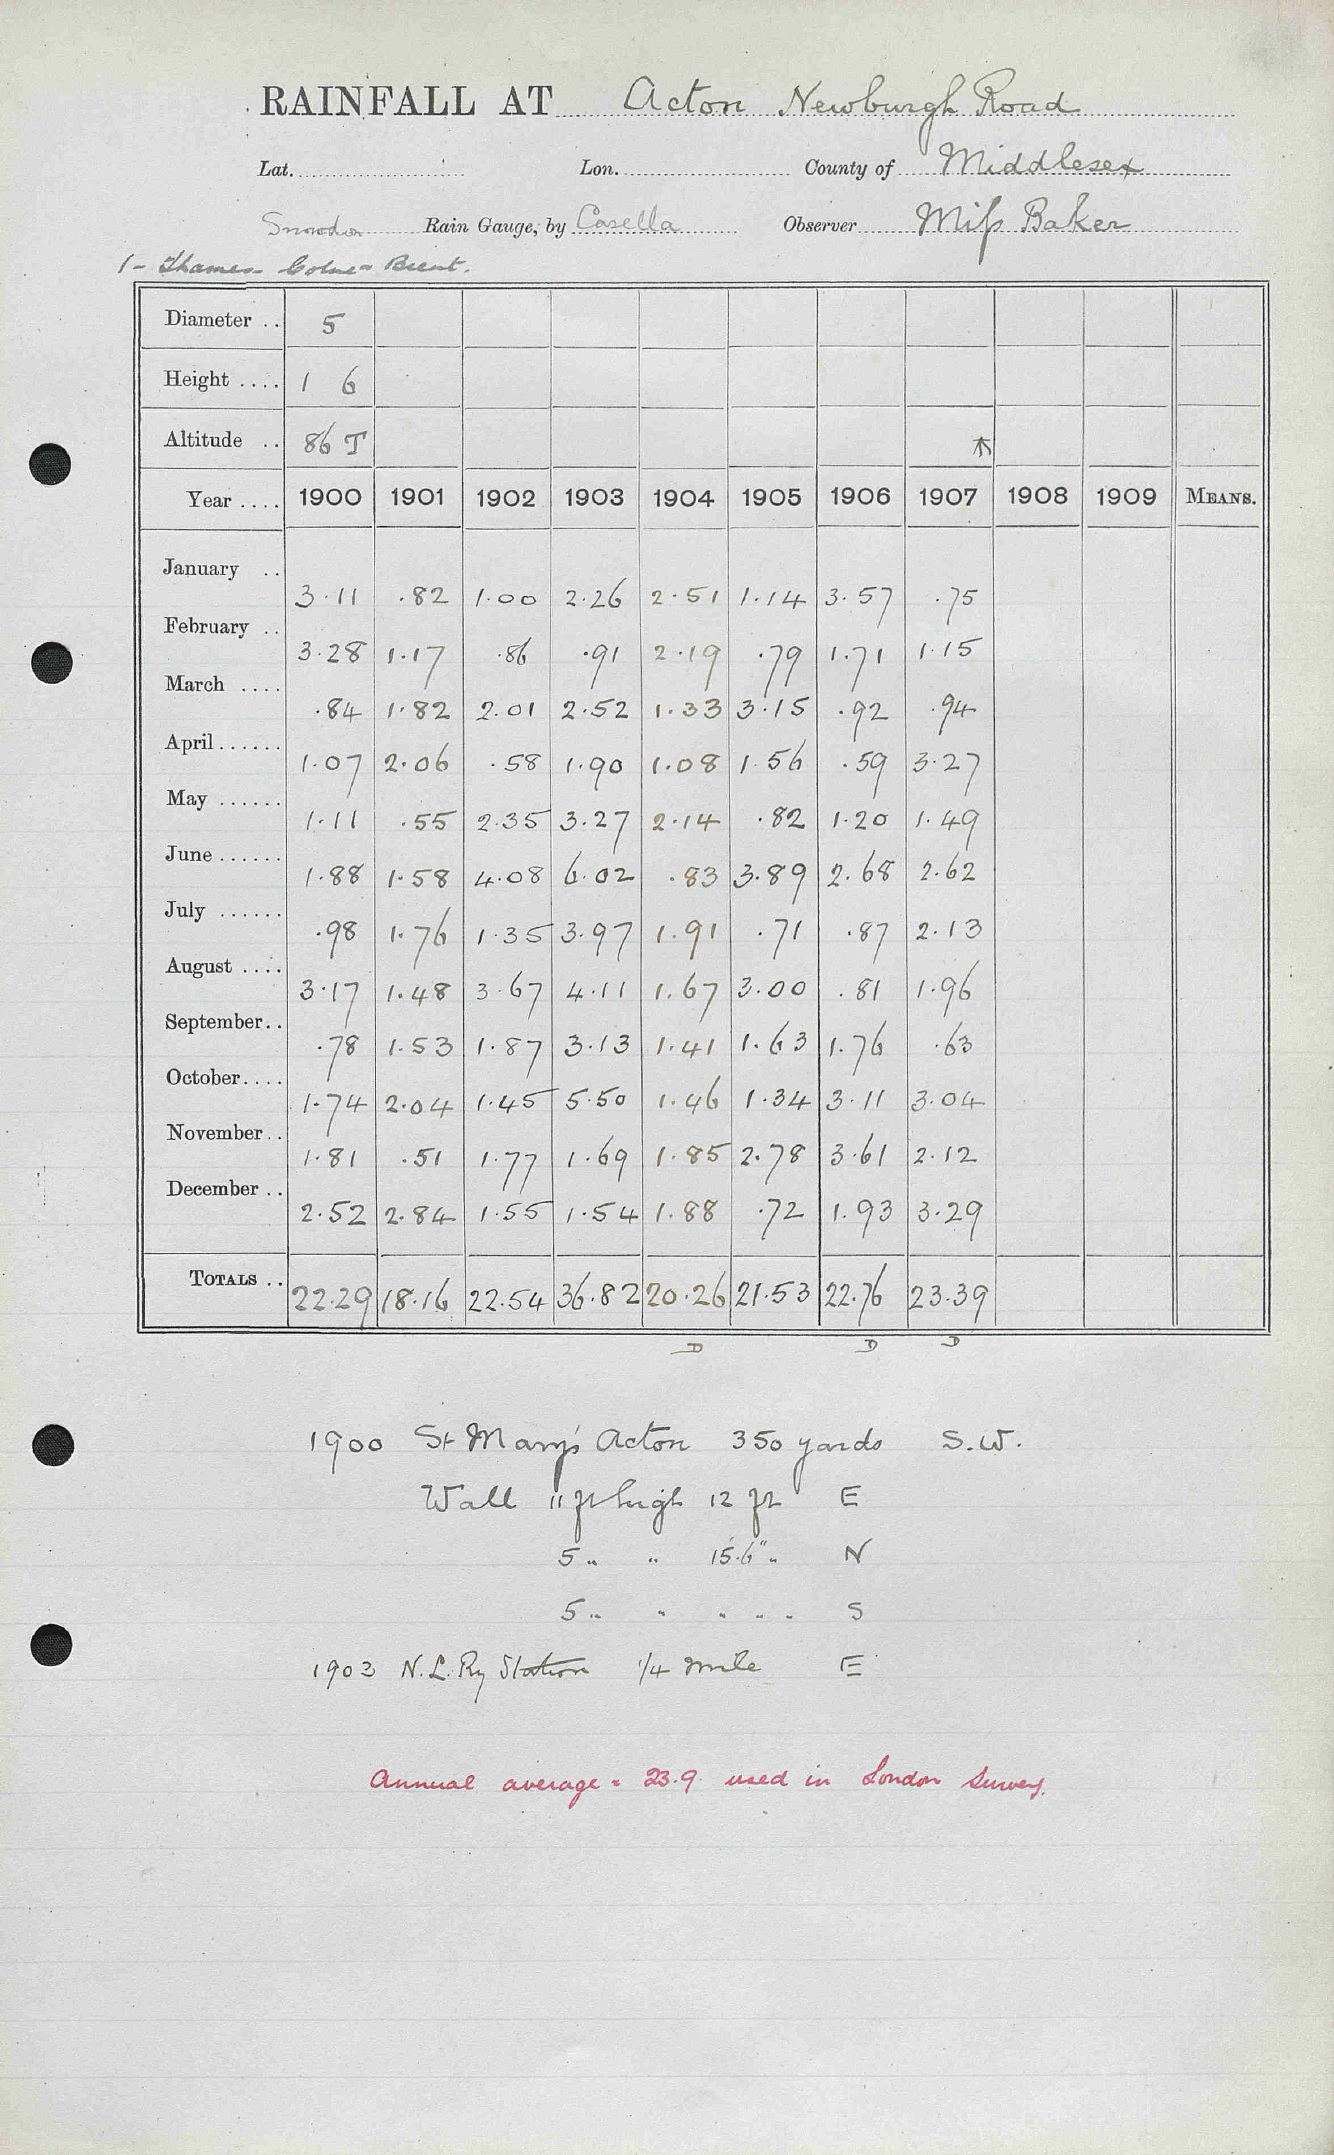 RAINFALL AT Acton Newburgh Road
Lat. Lon. County of Middlesex
Snowdon Rain Gauge, by Casella Observer Miss Baker
1 - Thames - Colne - Brent.
Diameter .. 5
Height .... 1 6
Altitude .. 86 T
Year .... 1900 1901 1902 1903 1904 1905 1906 1907 1908 1909 MEANS.
January .. 3.11 .82 1.00 2.26 2.51 1.14 3.57 .75
February .. 3.28 1.17 .86 .91 2.19 .79 1.71 1.15
March .... .84 1.82 2.01 2.52 1.33 3.15 .92 .94
April ...... 1.07 2.06 .58 1.90 1.08 1.56 .59 3.27
May ...... 1.11 .55 2.35 3.27 2.14 .82 1.20 1.49
June ...... 1.88 1.58 4.08 6.02 .83 3.89 2.68 2.62
July ...... .98 1.76 1.35 3.97 1.91 .71 .87 2.13
August .... 3.17 1.48 3.67 4.11 1.67 3.00 .81 1.96
September.. .78 1.53 1.87 3.13 1.41 1.63 1.76 .63
October.... 1.74 2.04 1.45 5.50 1.46 1.34 3.11 3.04
November.. 1.81 .51 1.77 1.69 1.85 2.78 3.61 2.12
December .. 2.52 2.84 1.55 1.54 1.88 .72 1.93 3.29
TOTALS .. 22.29 18.16 22.54 36.82 20.26 21.53 22.76 23.39
D D D
1900 St Mary's Acton 350 yards S.W.
Wall 11 ft high 12 ft E
5 " " 15.6" " N
5 " " " " " S
1903 N.L. Ry Station 1/4 mile E
Annual average = 23.9 used in London Survey.